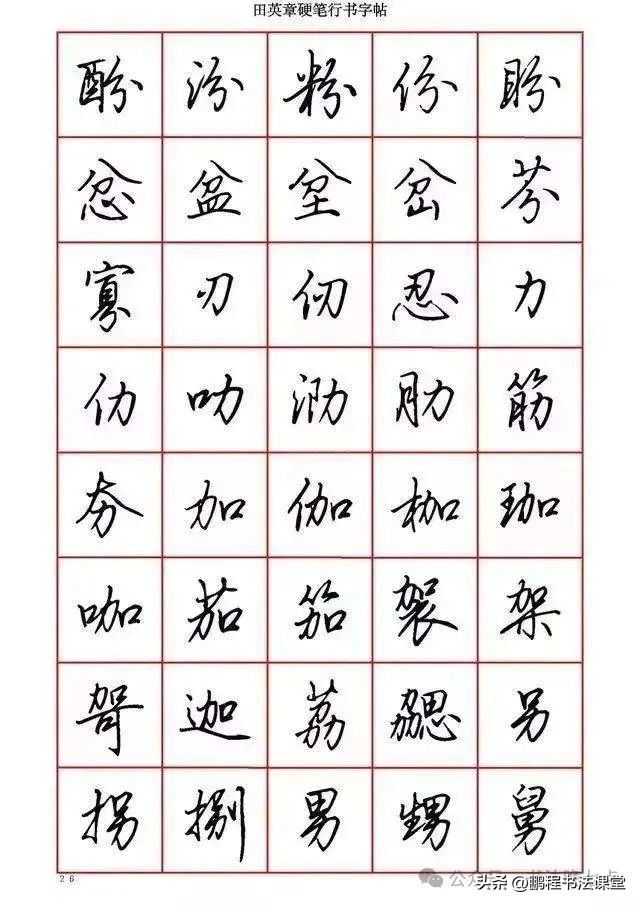 田英章硬笔行书字帖
酚 汾 粉 份 盼
忿 盆 坌 岔 芬
寡 刃 仞 忍 力
仂 叻 泐 肋 筋
夯 加 伽 枷 珈
咖 茄 笳 袈 架
哿 迦 荔 勰 另
拐 捌 男 甥 舅
26
头条 @鹏程书法课堂